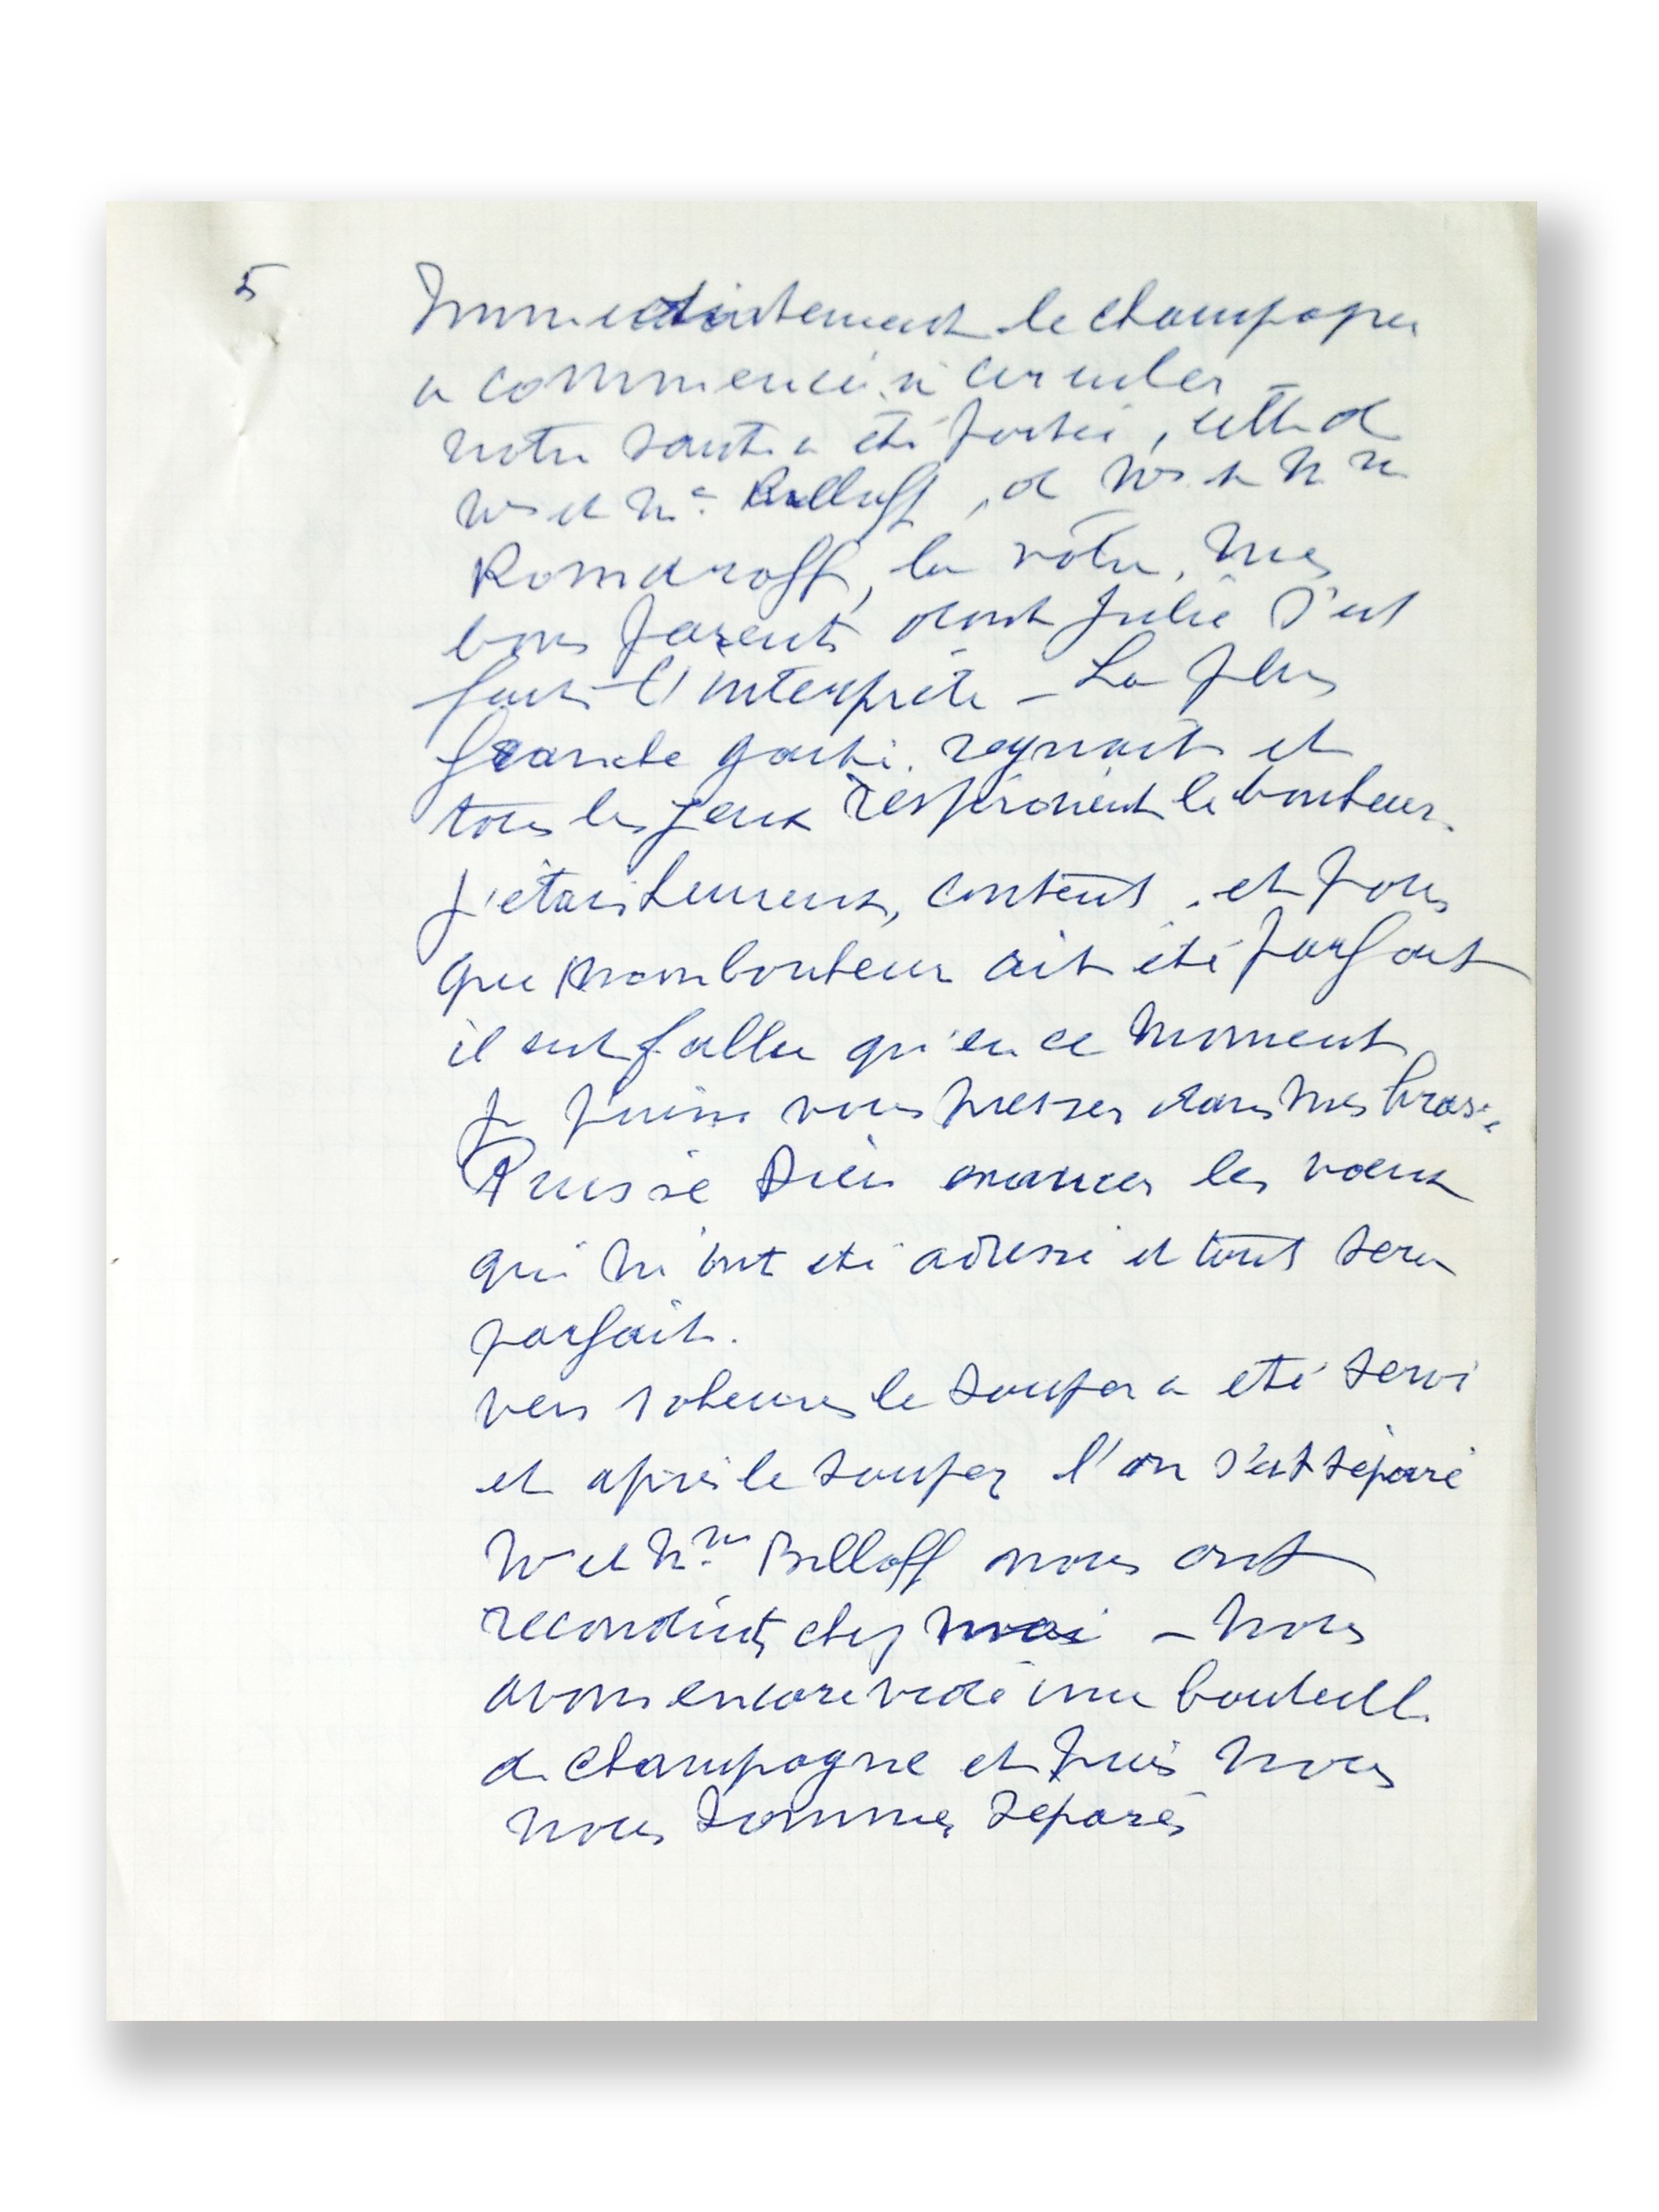 5
Immediatement le champagne
a commencé à circuler –
notre santé a été portée, celle de
Mr et Me Billoff, de Mr et Mme
Romanoff, la votre, mes
bons parents dont Julie s'est
fait l'interprète – La plus
grande gaité regnait et
tous les yeux respiraient le bonheur.
j'étais heureux, content, et pour
que mon bonheur ait été parfait
il eut fallu qu'en ce moment
je puisse vous presser dans mes bras.
Puisse Dieu exaucer les voeux
qui m'ont été adressé et tout sera
parfait.
vers 10 heures le souper a été servi
et après le souper l'on s'est séparé
Mr et Mme Billoff nous ont
reconduits chez moi – Nous
avons encore vidé une bouteille
de champagne et puis nous
nous sommes separés